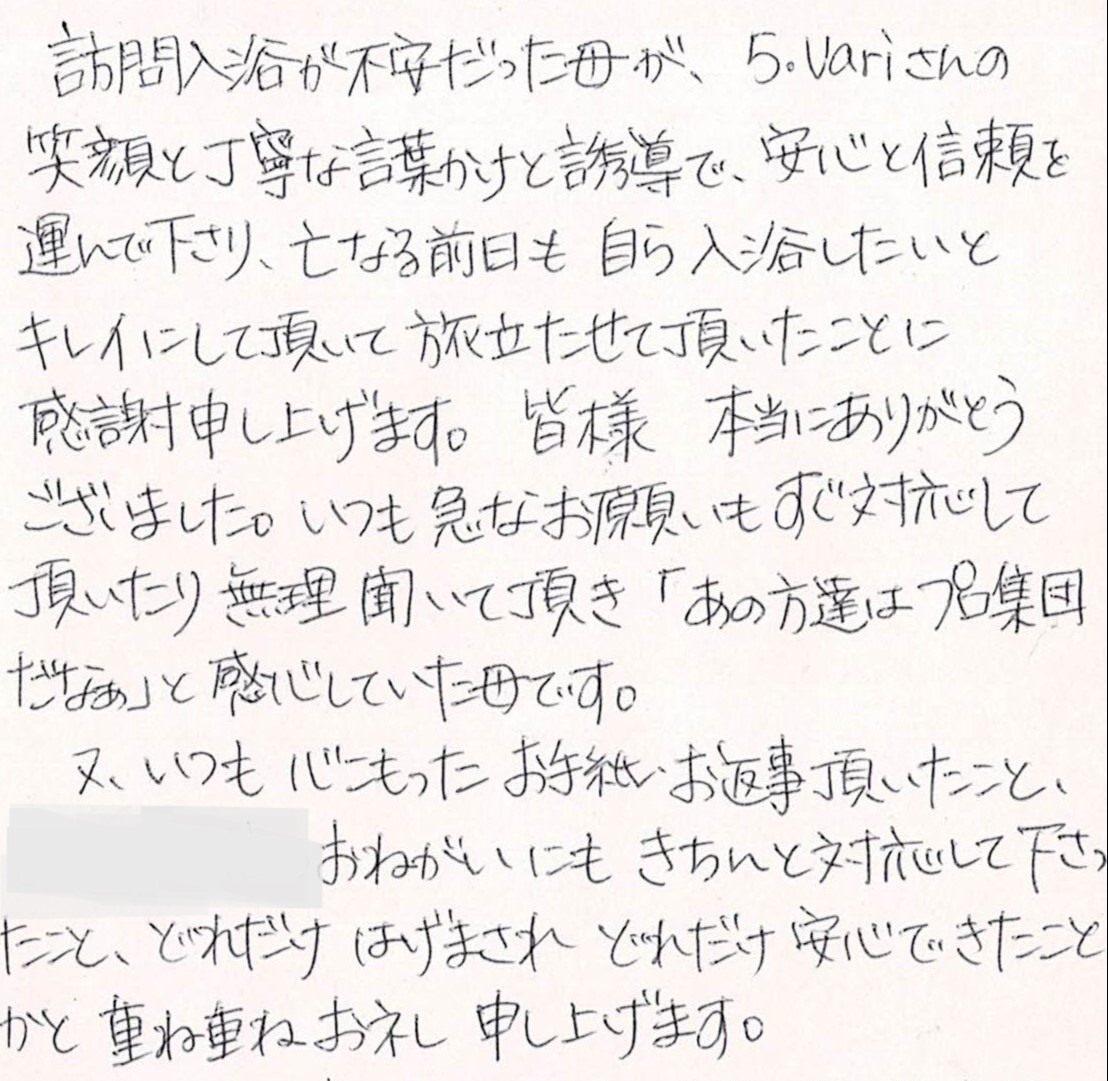 訪問入浴が不安だった母が、5.Variさんの
笑顔と丁寧な言葉かけと誘導で、安心と信頼を
運んで下さり、亡なる前日も 自ら入浴したいと
キレイにして頂いて 旅立たせて頂いたことに
感謝申し上げます。 皆様 本当にありがとう
ございました。いつも 急なお願いもすぐ対応して
頂いたり 無理聞いて頂き「あの方達はプロ集団
だなぁ」と 感心していた母です。
又、いつも 心こもった お手紙・お返事頂いたこと、
おねがいにも きちんと対応して下さっ
たこと、どれだけ はげまされ どれだけ 安心できたこと
かと 重ね重ねお礼 申し上げます。